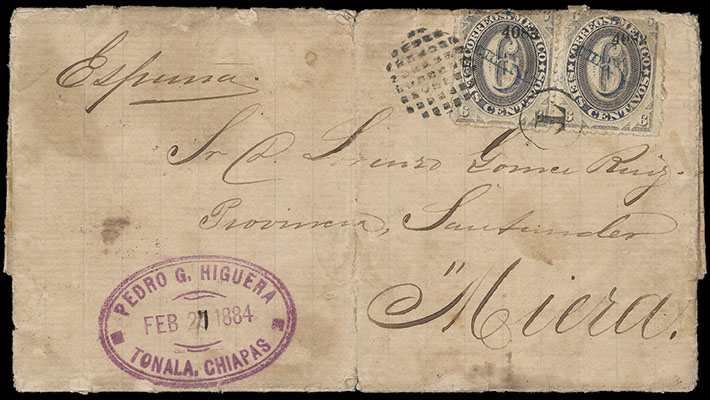 España.
CORREOS. MEXICO.
6
SEIS CENTAVOS
6 6
CORREOS. MEXICO.
6
SEIS CENTAVOS
6 6
T
Sr. D. Lorenzo Gomez Ruiz.
Provincia, Santander
"Miera.
PEDRO G. HIGUERA
FEB 21 1884
TONALA, CHIAPAS